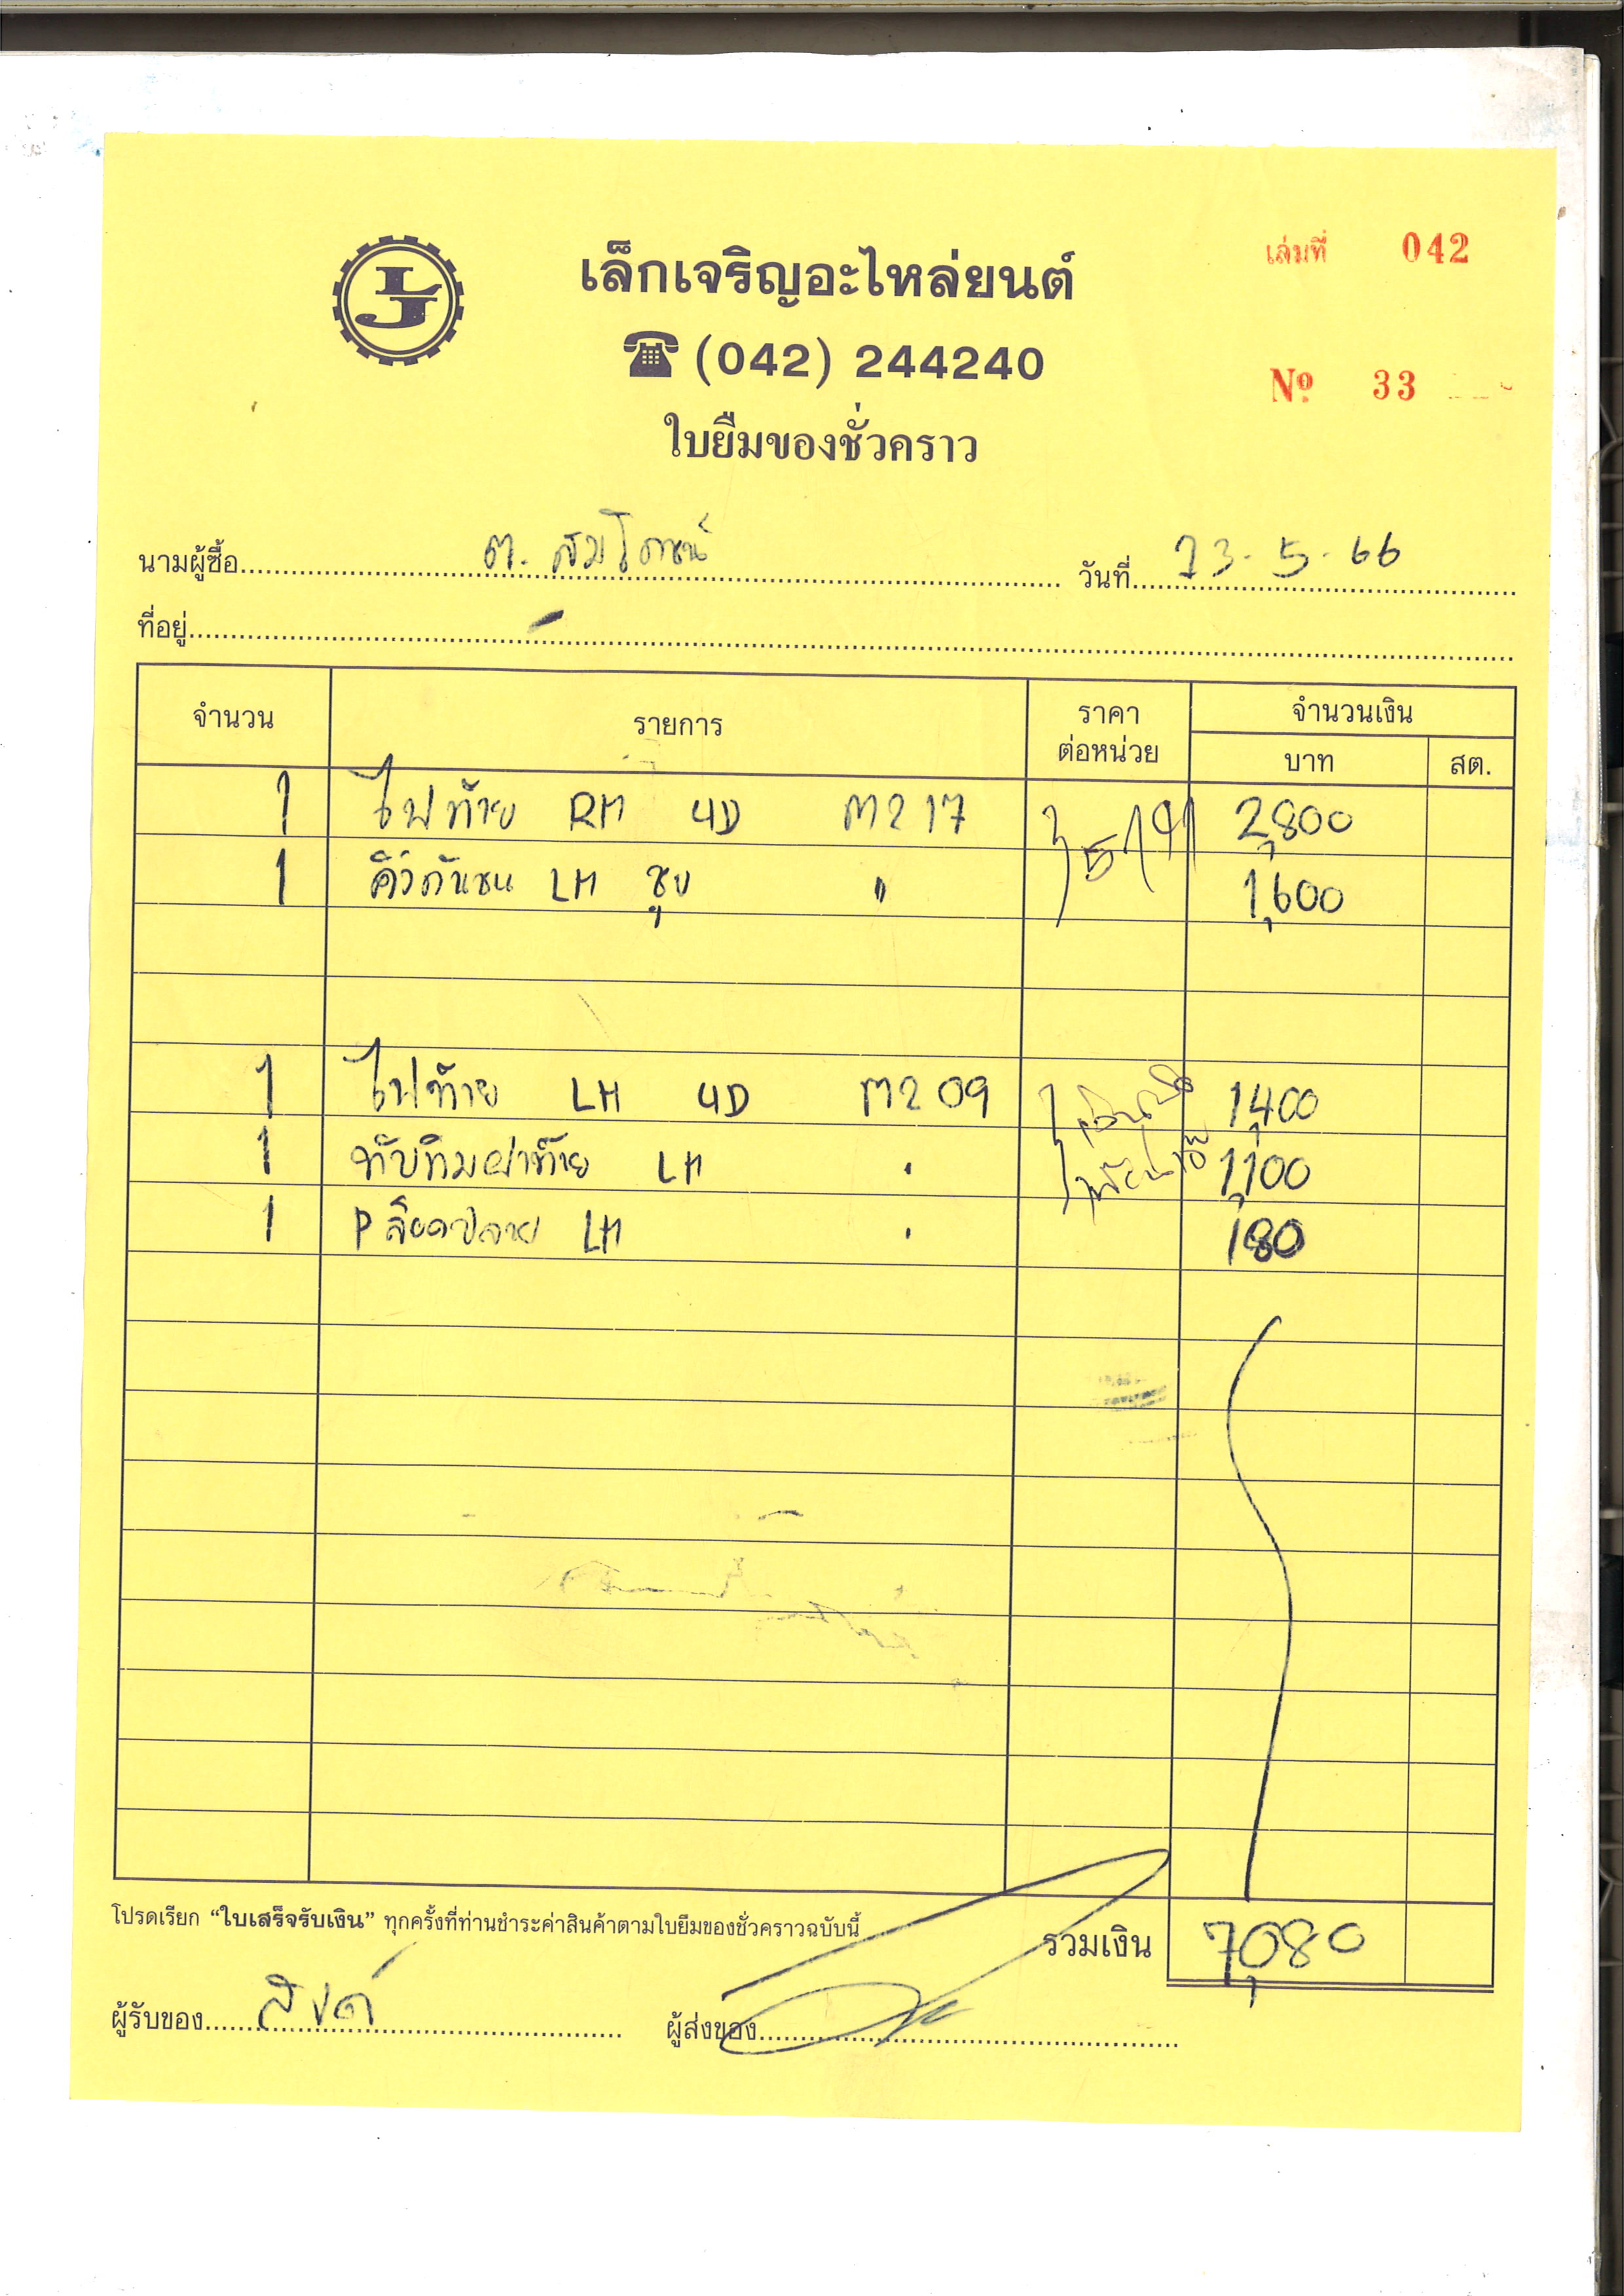 LJ
เล็กเจริญอะไหล่ยนต์
เล่มที่ 042
(042) 244240
Nº 33
ใบยืมของชั่วคราว
นามผู้ซื้อ ต. สมโภชน์ วันที่ 23-5-66
ที่อยู่ -
จำนวน รายการ ราคาต่อหน่วย จำนวนเงิน
บาท สต.
1 ไฟท้าย RH 4D M217 2,800
1 คิ้วกันชน LH ชุบ " 1,600
1 ไฟท้าย LH 4D M209 1,400
1 ทับทิมฝาท้าย LH " 1,100
1 Pล๊อคปลาย LH " 180
โปรดเรียก “ใบเสร็จรับเงิน” ทุกครั้งที่ท่านชำระค่าสินค้าตามใบยืมของชั่วคราวฉบับนี้
รวมเงิน 7,080
ผู้รับของ ผู้ส่งของ